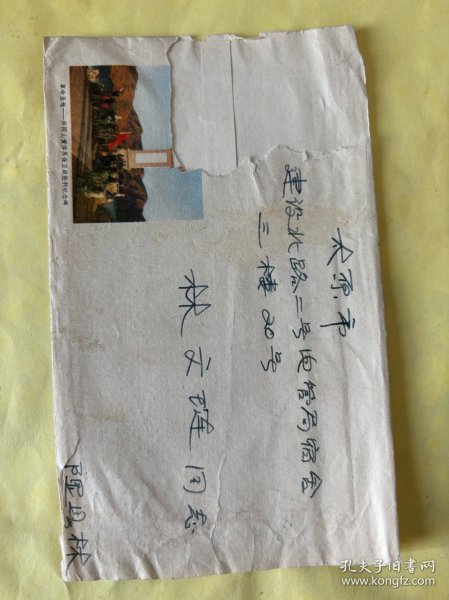 太原市
建设北路二号电管局宿舍
三楼20号
林文琏同志
林
革命圣地——井冈山黄洋界保卫战胜利纪念碑
孔夫子旧书网
www.kongfz.com